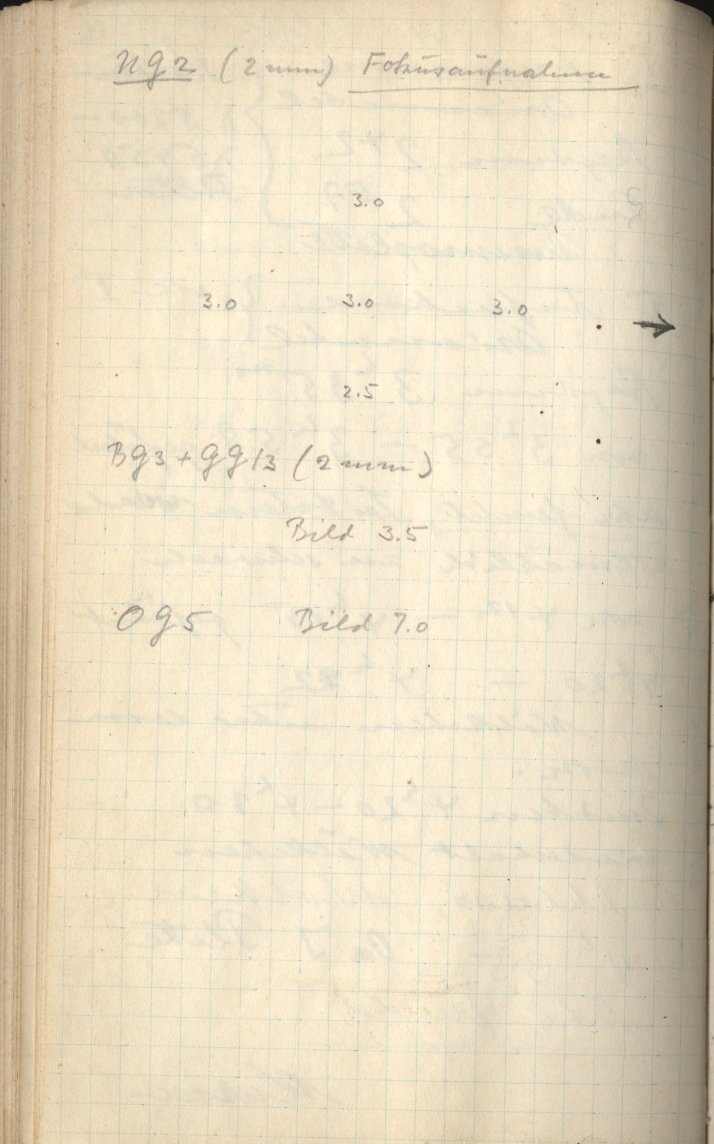 NG2 (2 mm) Fokusaufnahme
3.0
3.0 3.0 3.0
2.5
BG3 + GG13 (2 mm)
Bild 3.5
OG5 Bild 7.0